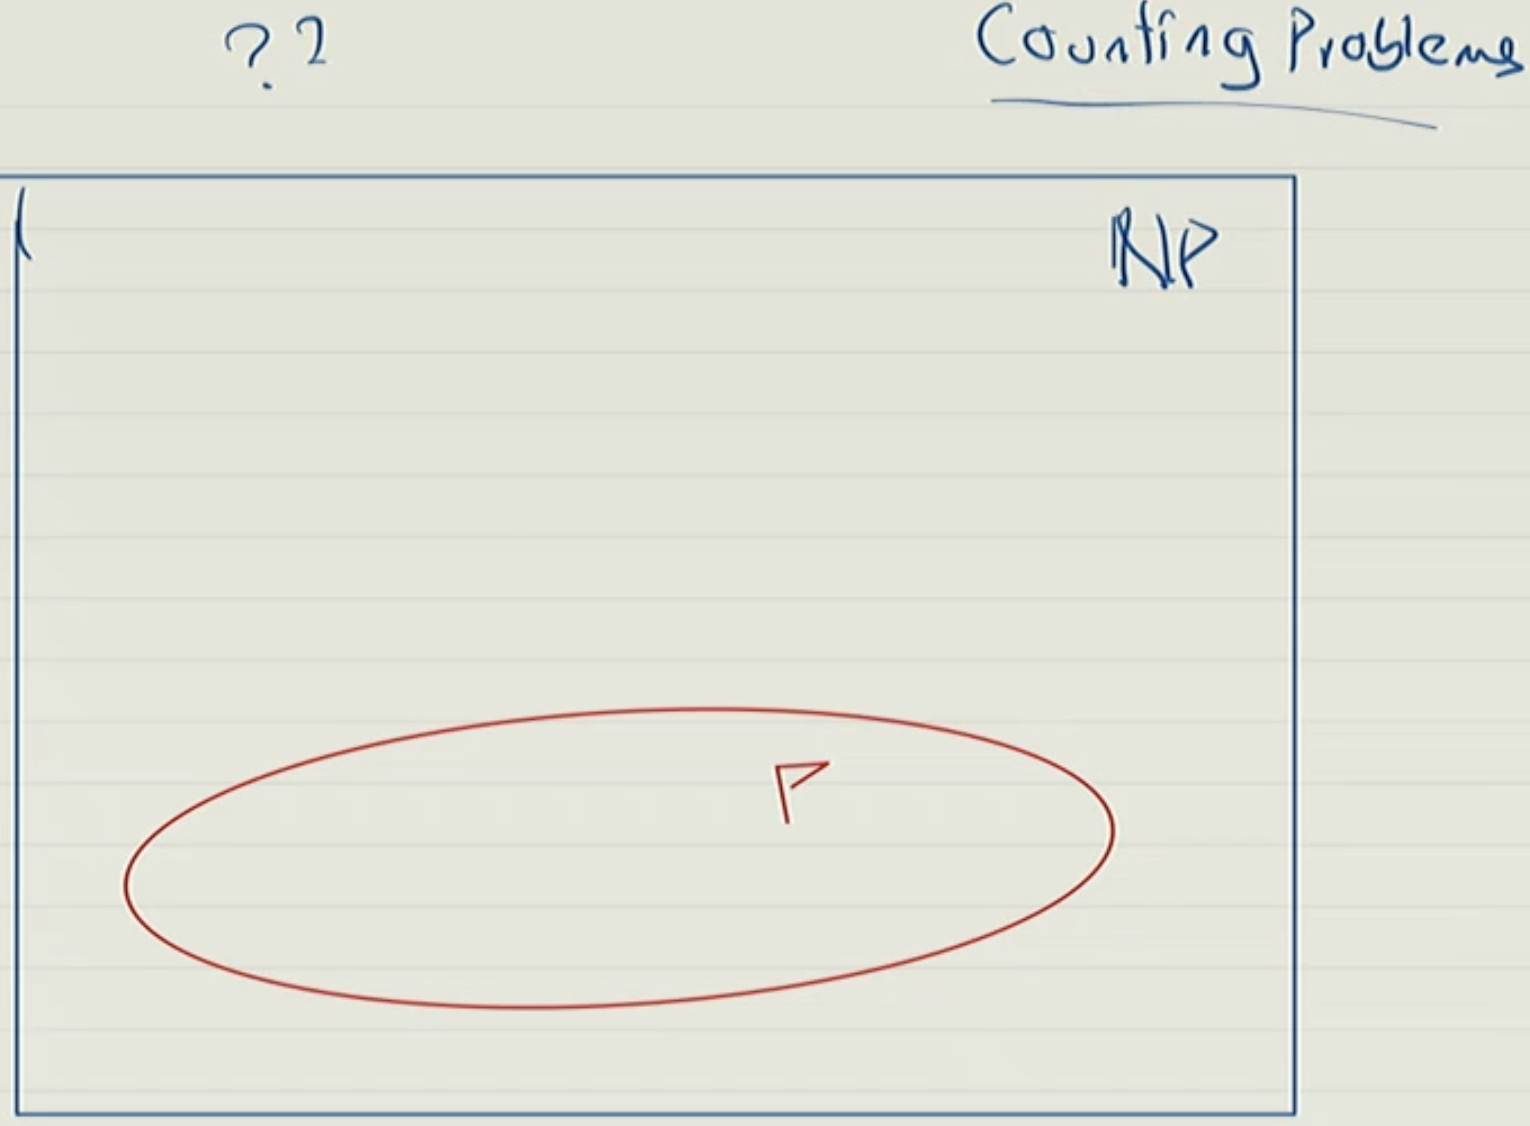 ?? Counting Problems
NP
P